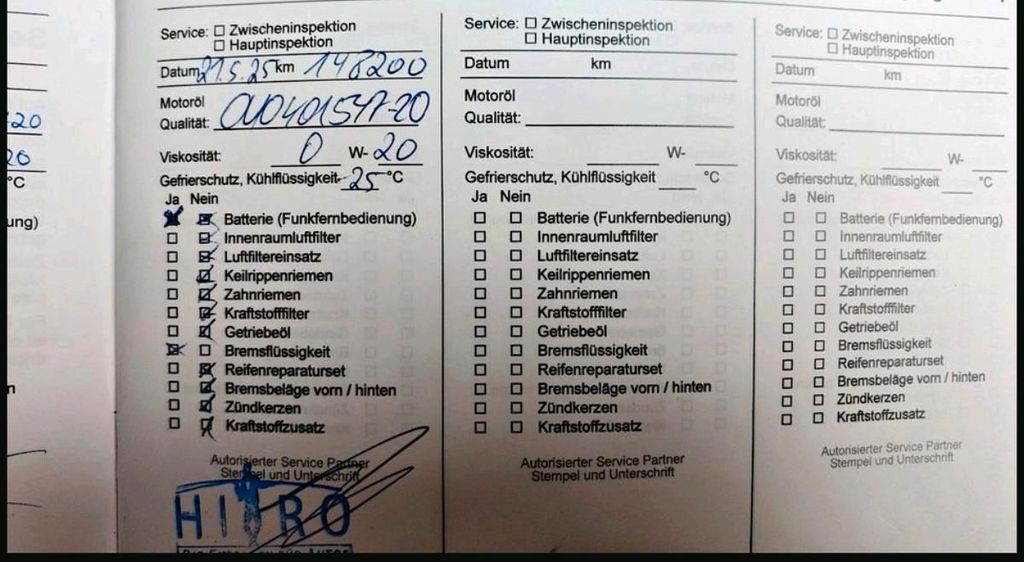 20
20
°C
ung)
n
Service: Zwischeninspektion
Hauptinspektion
Datum 21.5.25 km 148200
Motoröl
Qualität: OV0401547-20
Viskosität: 0 W- 20
Gefrierschutz, Kühlflüssigkeit -25 °C
Ja Nein
Batterie (Funkfernbedienung)
Innenraumluftfilter
Luftfiltereinsatz
Keilrippenriemen
Zahnriemen
Kraftstofffilter
Getriebeöl
Bremsflüssigkeit
Reifenreparaturset
Bremsbeläge vorn / hinten
Zündkerzen
Kraftstoffzusatz
Autorisierter Service Partner
Stempel und Unterschrift
HITRO
Service: Zwischeninspektion
Hauptinspektion
Datum km
Motoröl
Qualität:
Viskosität: W-
Gefrierschutz, Kühlflüssigkeit °C
Ja Nein
Batterie (Funkfernbedienung)
Innenraumluftfilter
Luftfiltereinsatz
Keilrippenriemen
Zahnriemen
Kraftstofffilter
Getriebeöl
Bremsflüssigkeit
Reifenreparaturset
Bremsbeläge vorn / hinten
Zündkerzen
Kraftstoffzusatz
Autorisierter Service Partner
Stempel und Unterschrift
Service: Zwischeninspektion
Hauptinspektion
Datum km
Motoröl
Qualität:
Viskosität: W-
Gefrierschutz, Kühlflüssigkeit °C
Ja Nein
Batterie (Funkfernbedienung)
Innenraumluftfilter
Luftfiltereinsatz
Keilrippenriemen
Zahnriemen
Kraftstofffilter
Getriebeöl
Bremsflüssigkeit
Reifenreparaturset
Bremsbeläge vorn / hinten
Zündkerzen
Kraftstoffzusatz
Autorisierter Service Partner
Stempel und Unterschrift